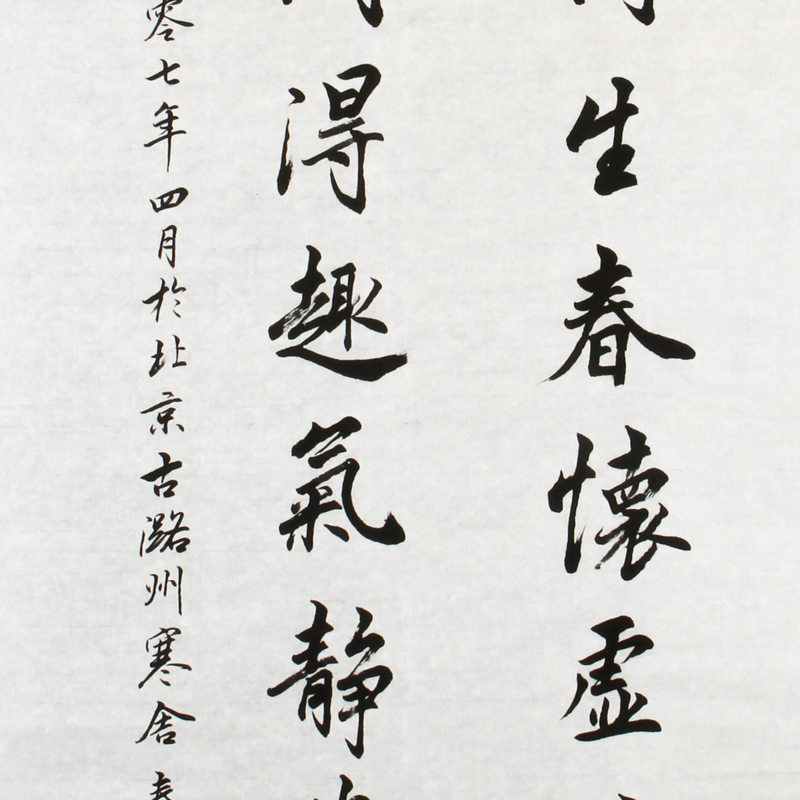 生春懷虛
得趣氣静
零七年四月於北京古潞州寒舍春